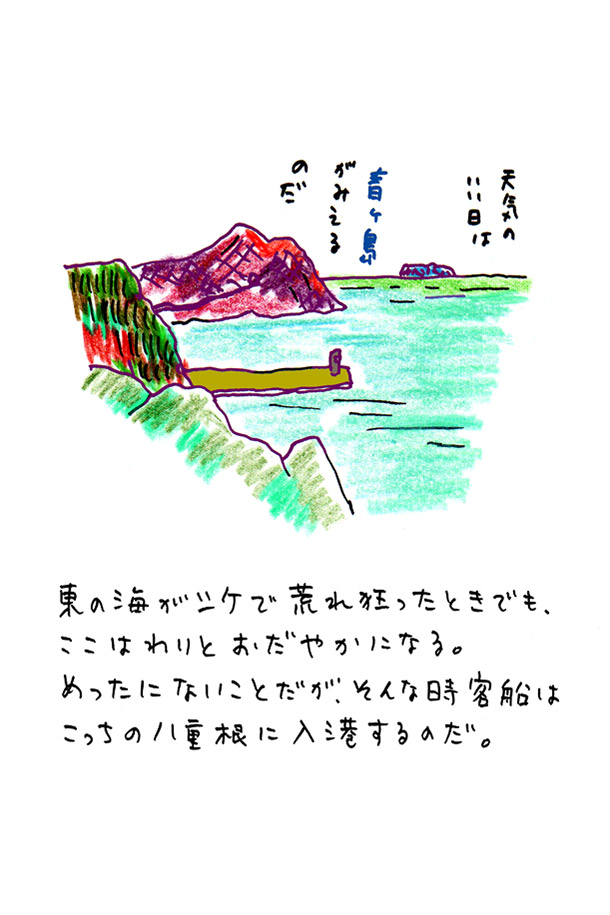 天気の
いい日は
青ヶ島
がみえる
のだ
東の海がシケで荒れ狂ったときでも、
ここはわりとおだやかになる。
めったにないことだが、そんな時客船は
こっちの八重根に入港するのだ。